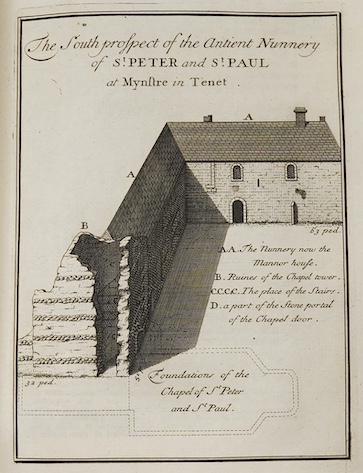 The South prospect of the Antient Nunnery
of St. PETER and St. PAUL
at Mynstre in Tenet .
A
A
B
63 ped.
A A . The Nunnery now the
Mannor house.
B . Ruines of the Chapel tower.
C.C.C.C. The place of the Stairs.
D . a part of the Stone portal
of the Chapel door .
32 ped.
Foundations of the
Chapel of St. Peter
and St. Paul .